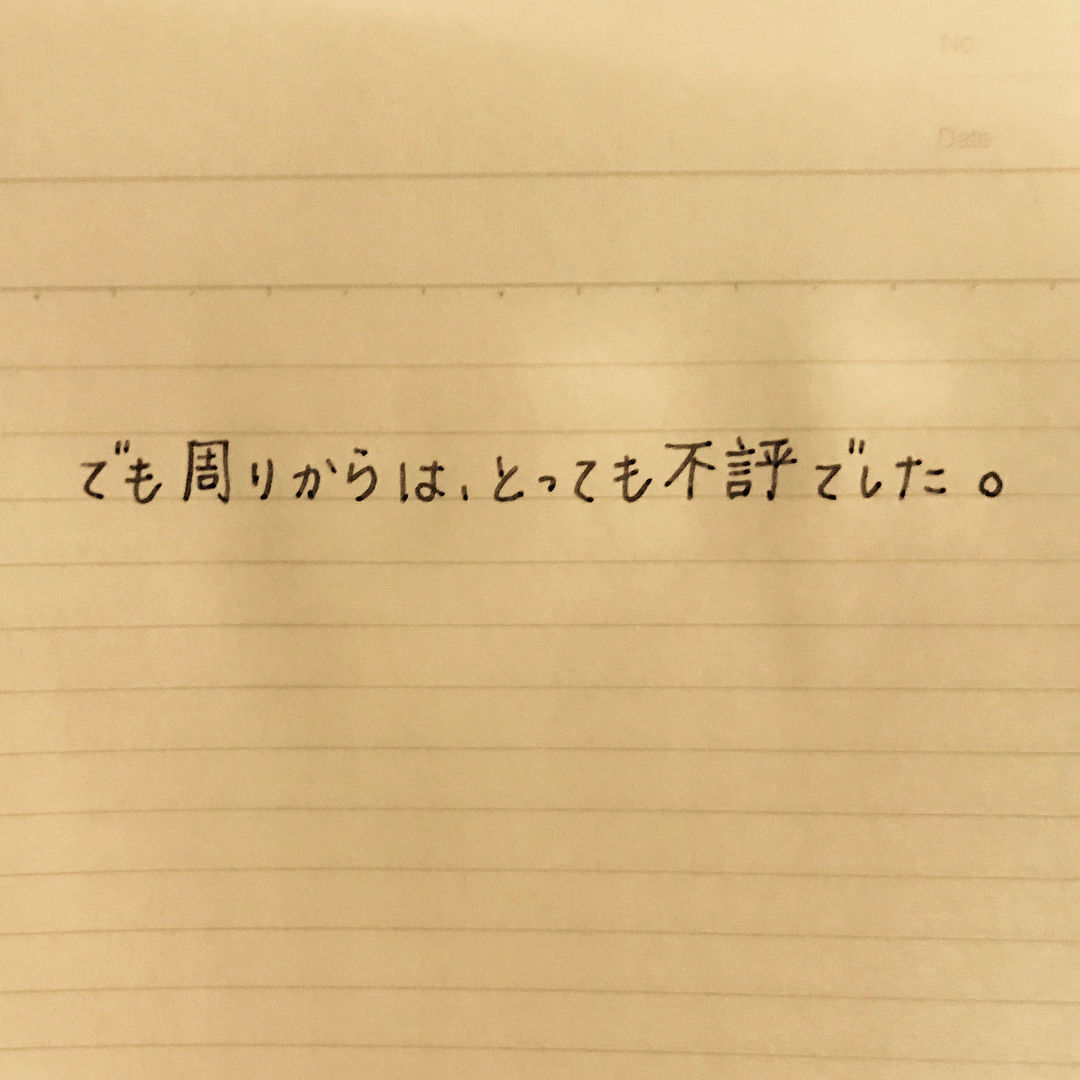 No.
Date
でも周りからは、とっても不評でした。